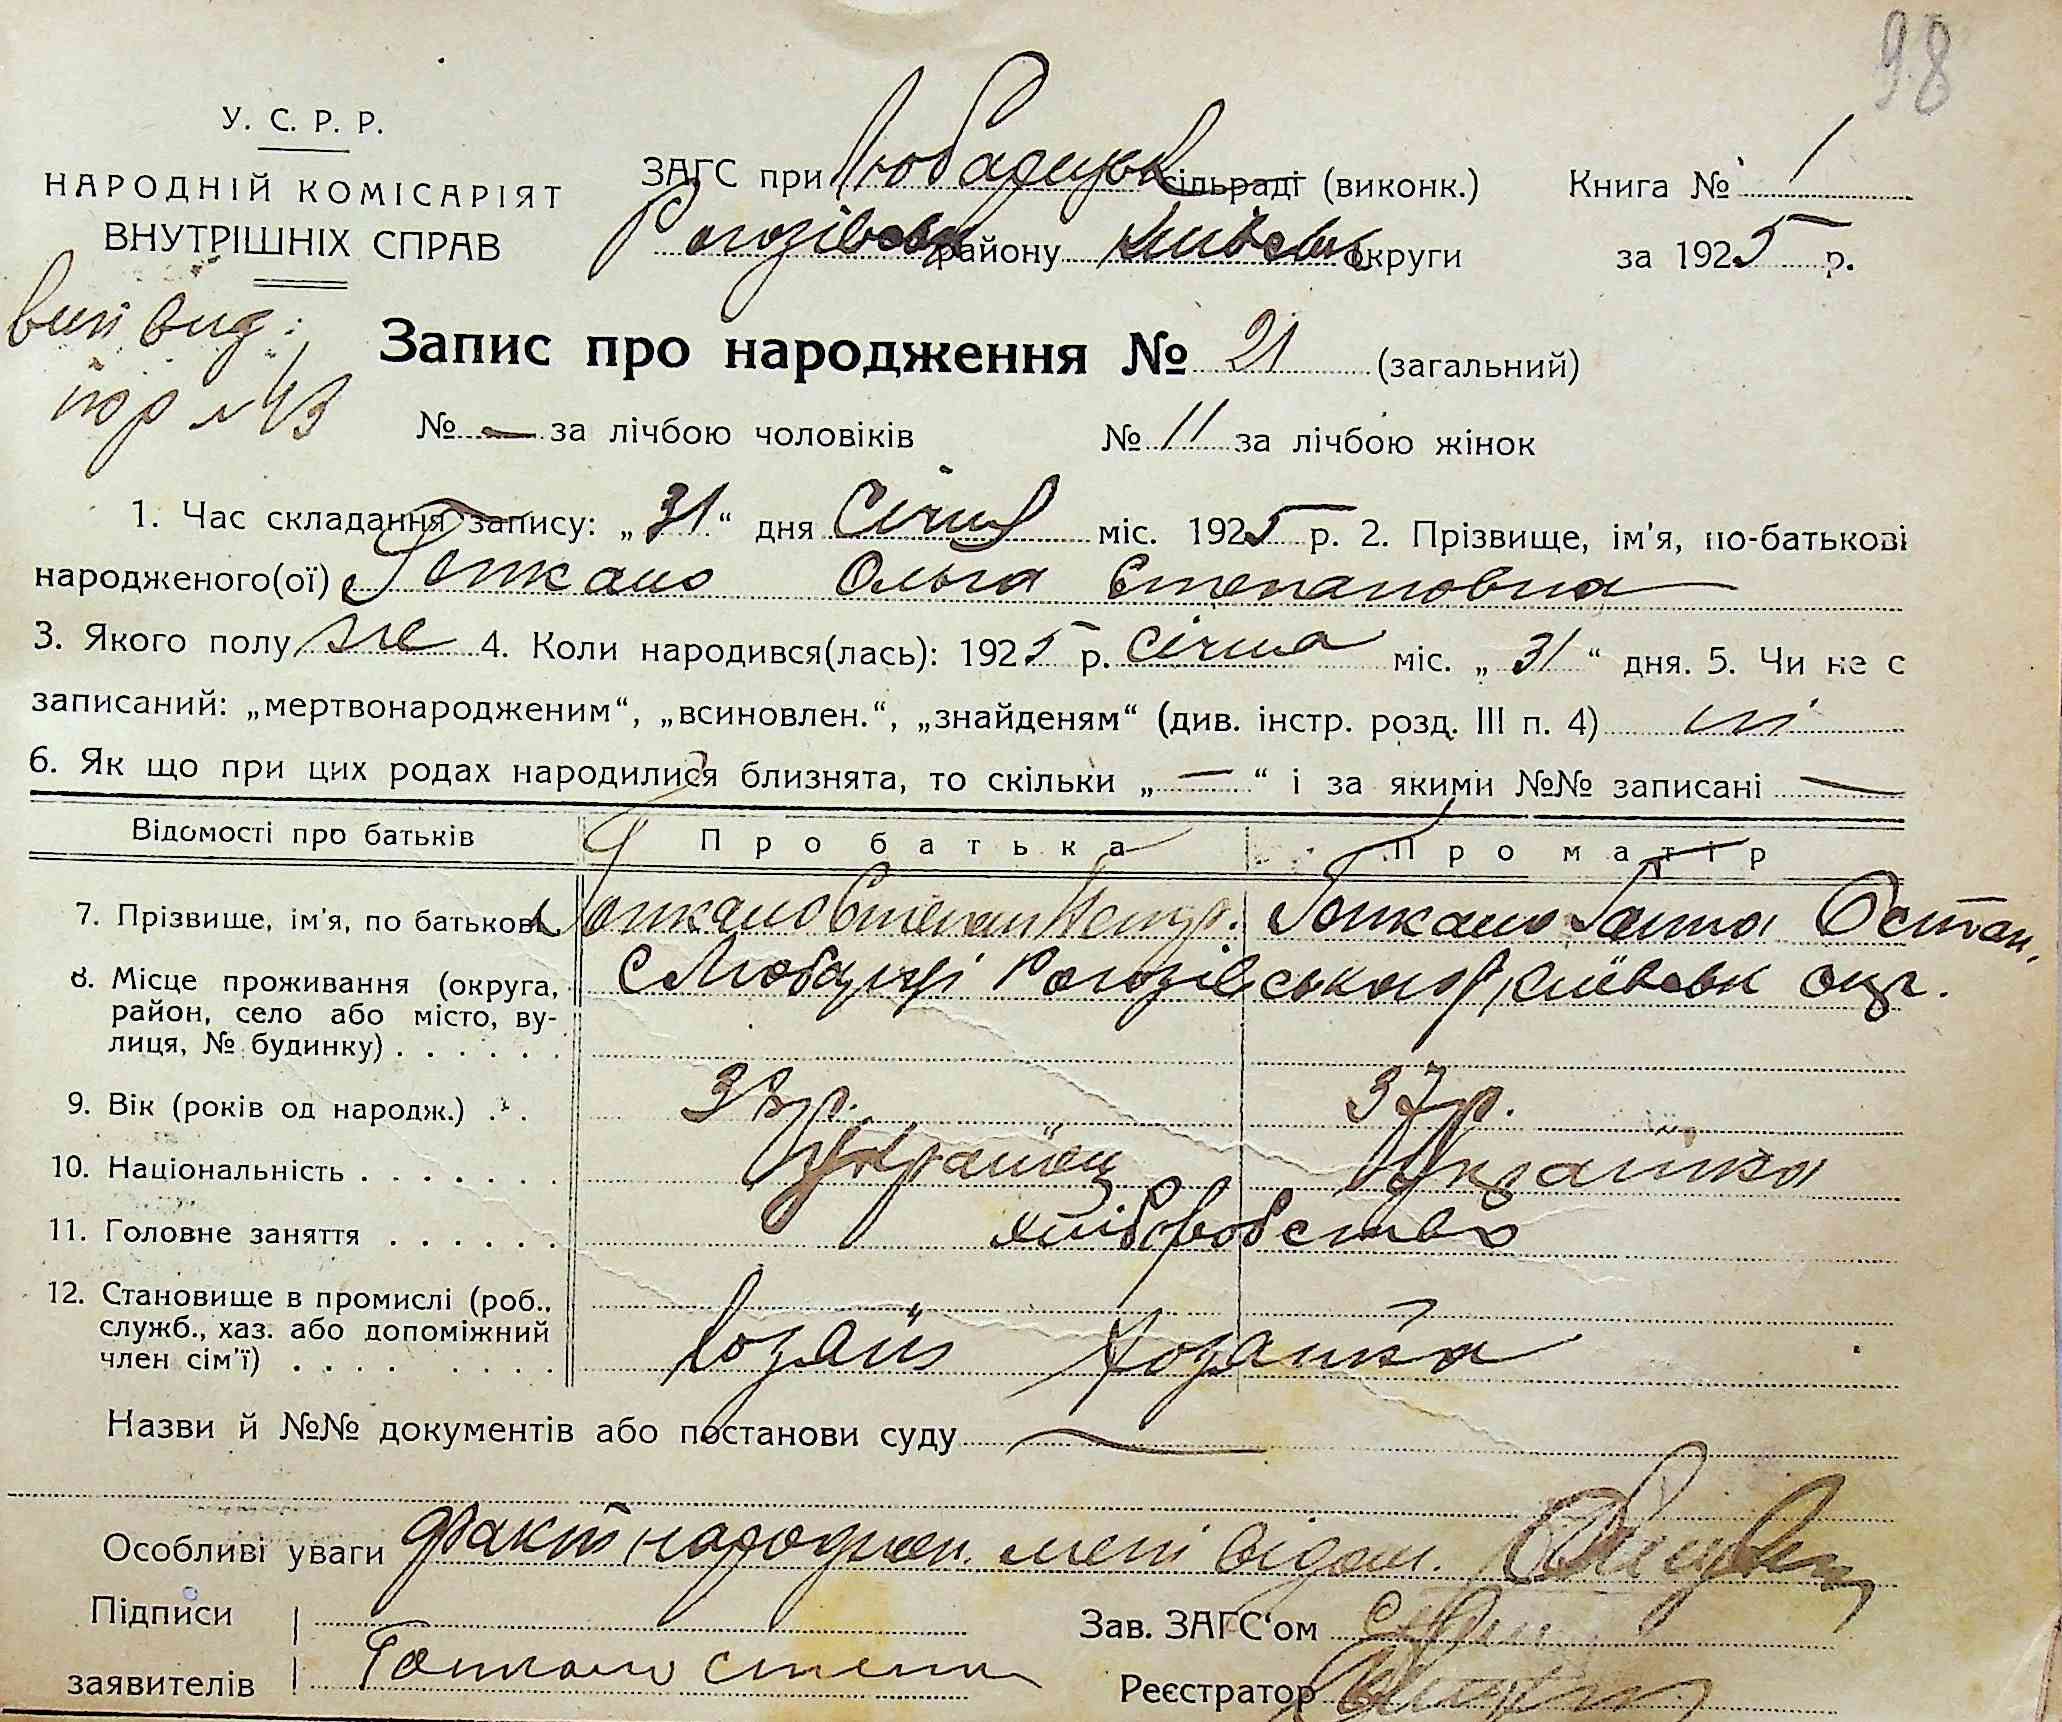 98
У. С. Р. Р.
НАРОДНІЙ КОМІСАРІЯТ
ВНУТРІШНІХ СПРАВ
ЗАГС при Любарецьк сільраді (виконк.) Книга № 1
Рогозівськ району Київськ округи за 1925 р.
вип вид:
Запис про народження № 21 (загальний)
№ 43
№ — за лічбою чоловіків № 11 за лічбою жінок
1. Час складання запису: „31“ дня Січня міс. 1925 р. 2. Прізвище, ім'я, по-батькові
народженого(ої) Ольга Степановна
3. Якого полу же 4. Коли народився(лась): 1925 р. Січня міс. „31“ дня. 5. Чи не є
записаний: „мертвонародженим“, „всиновлен.“, „знайденям“ (див. інстр. розд. III п. 4) ні
6. Як що при цих родах народилися близнята, то скільки „—“ і за якими №№ записані —
Відомості про батьків Про батька Про матір
7. Прізвище, ім'я, по батькові Степан Петр. Ганна Остап.
8. Місце проживання (округа, с Любарці Рогозівського р, Київськ окр.
район, село або місто, ву-
лиця, № будинку) . . . . . .
9. Вік (років од народж.) . . . 38 р. 37 р.
10. Національність . . . . . . . Українец Українка
11. Головне заняття . . . . . . хліборобство
12. Становище в промислі (роб.,
служб., хаз. або допоміжний Хозяїн Хозяйка
член сім'ї) . . . . . . . . .
Назви й №№ документів або постанови суду —
Особливі уваги Факт народжен. мені відом.
Підписи Зав. ЗАГС'ом
заявителів Реєстратор